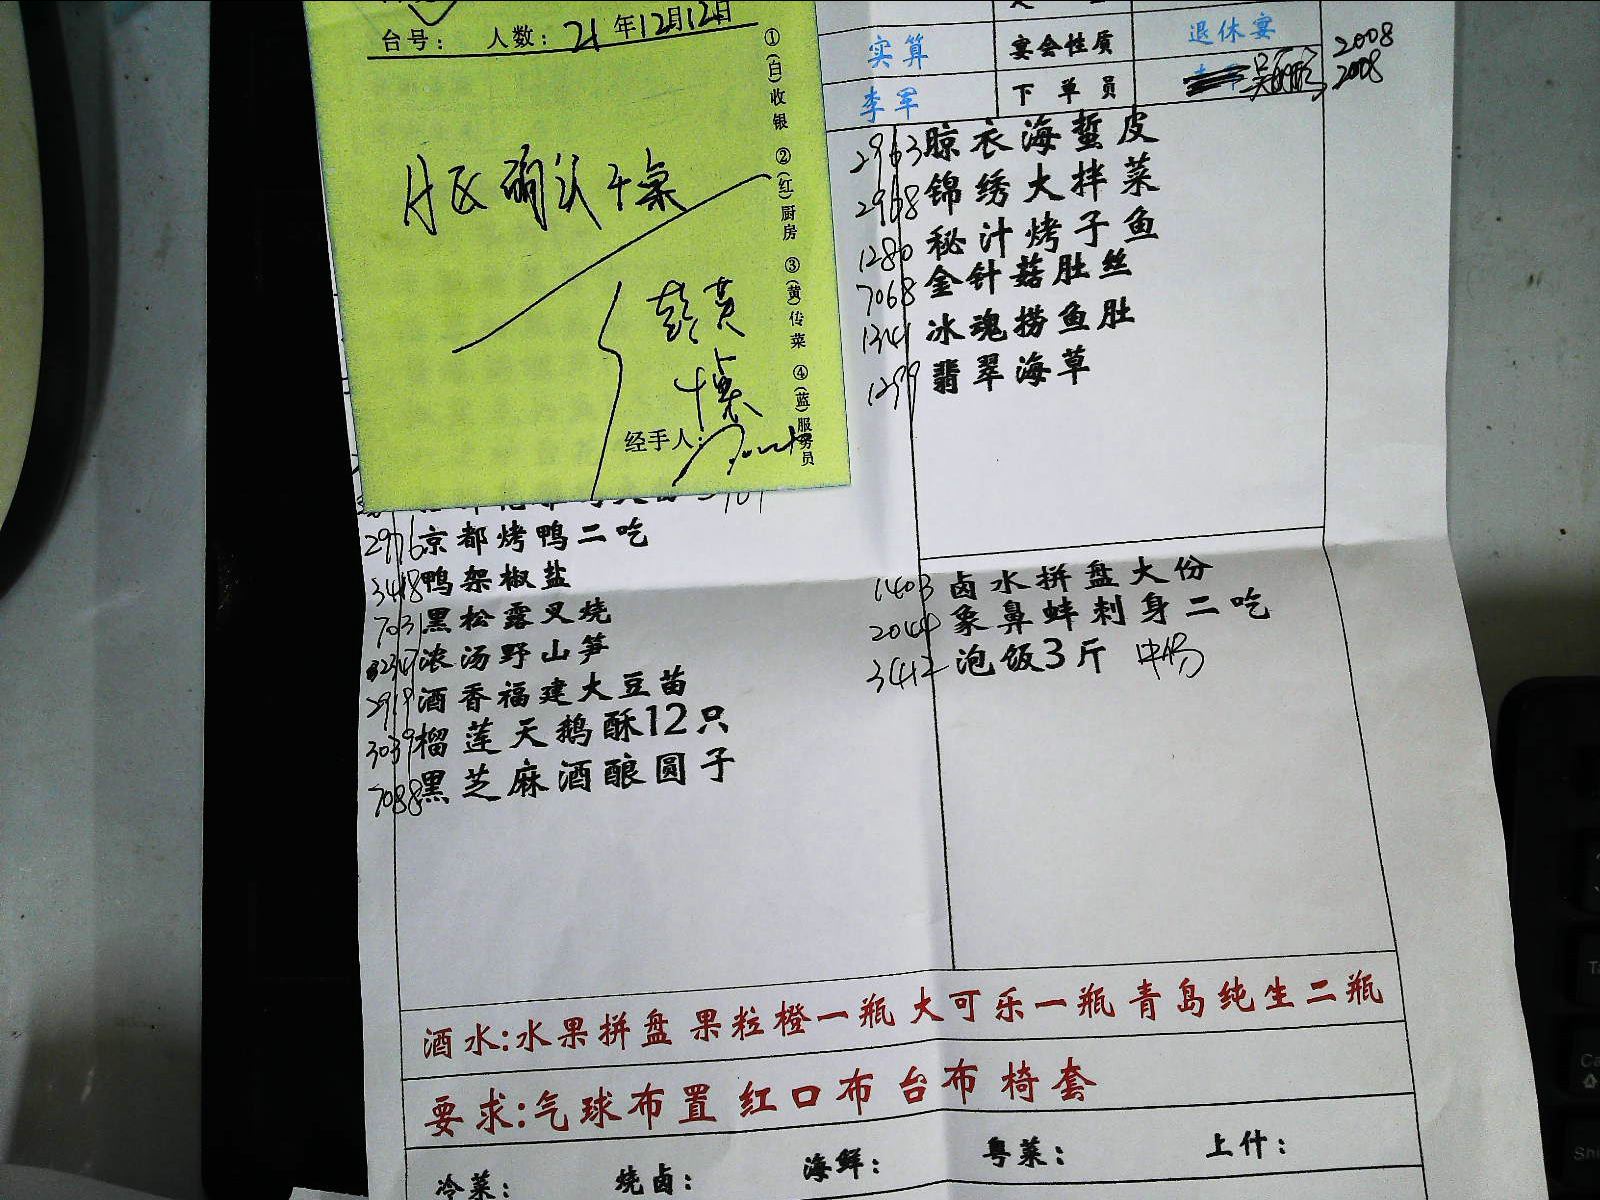 台号： 人数：21年12月12日
①(白)收银 ②(红)厨房 ③(黄)传菜 ④(蓝)服务员
经手人：
实算 宴会性质 退休宴 2008
李军 下单员 2008
2963 晾衣海蜇皮
2968 锦绣大拌菜
1280 秘汁烤子鱼
7068 金针菇肚丝
1341 冰魂捞鱼肚
1299 翡翠海草
2976 京都烤鸭二吃
3418 鸭架椒盐
7031 黑松露叉烧
浓汤野山笋
2919 酒香福建大豆苗
3039 榴莲天鹅酥12只
7088 黑芝麻酒酿圆子
1403 卤水拼盘大份
2044 象鼻蚌刺身二吃
3412 泡饭3斤
酒水:水果拼盘 果粒橙一瓶 大可乐一瓶 青岛纯生二瓶
要求:气球布置 红口布 台布 椅套
冷菜: 烧卤: 海鲜: 粤菜: 上什: